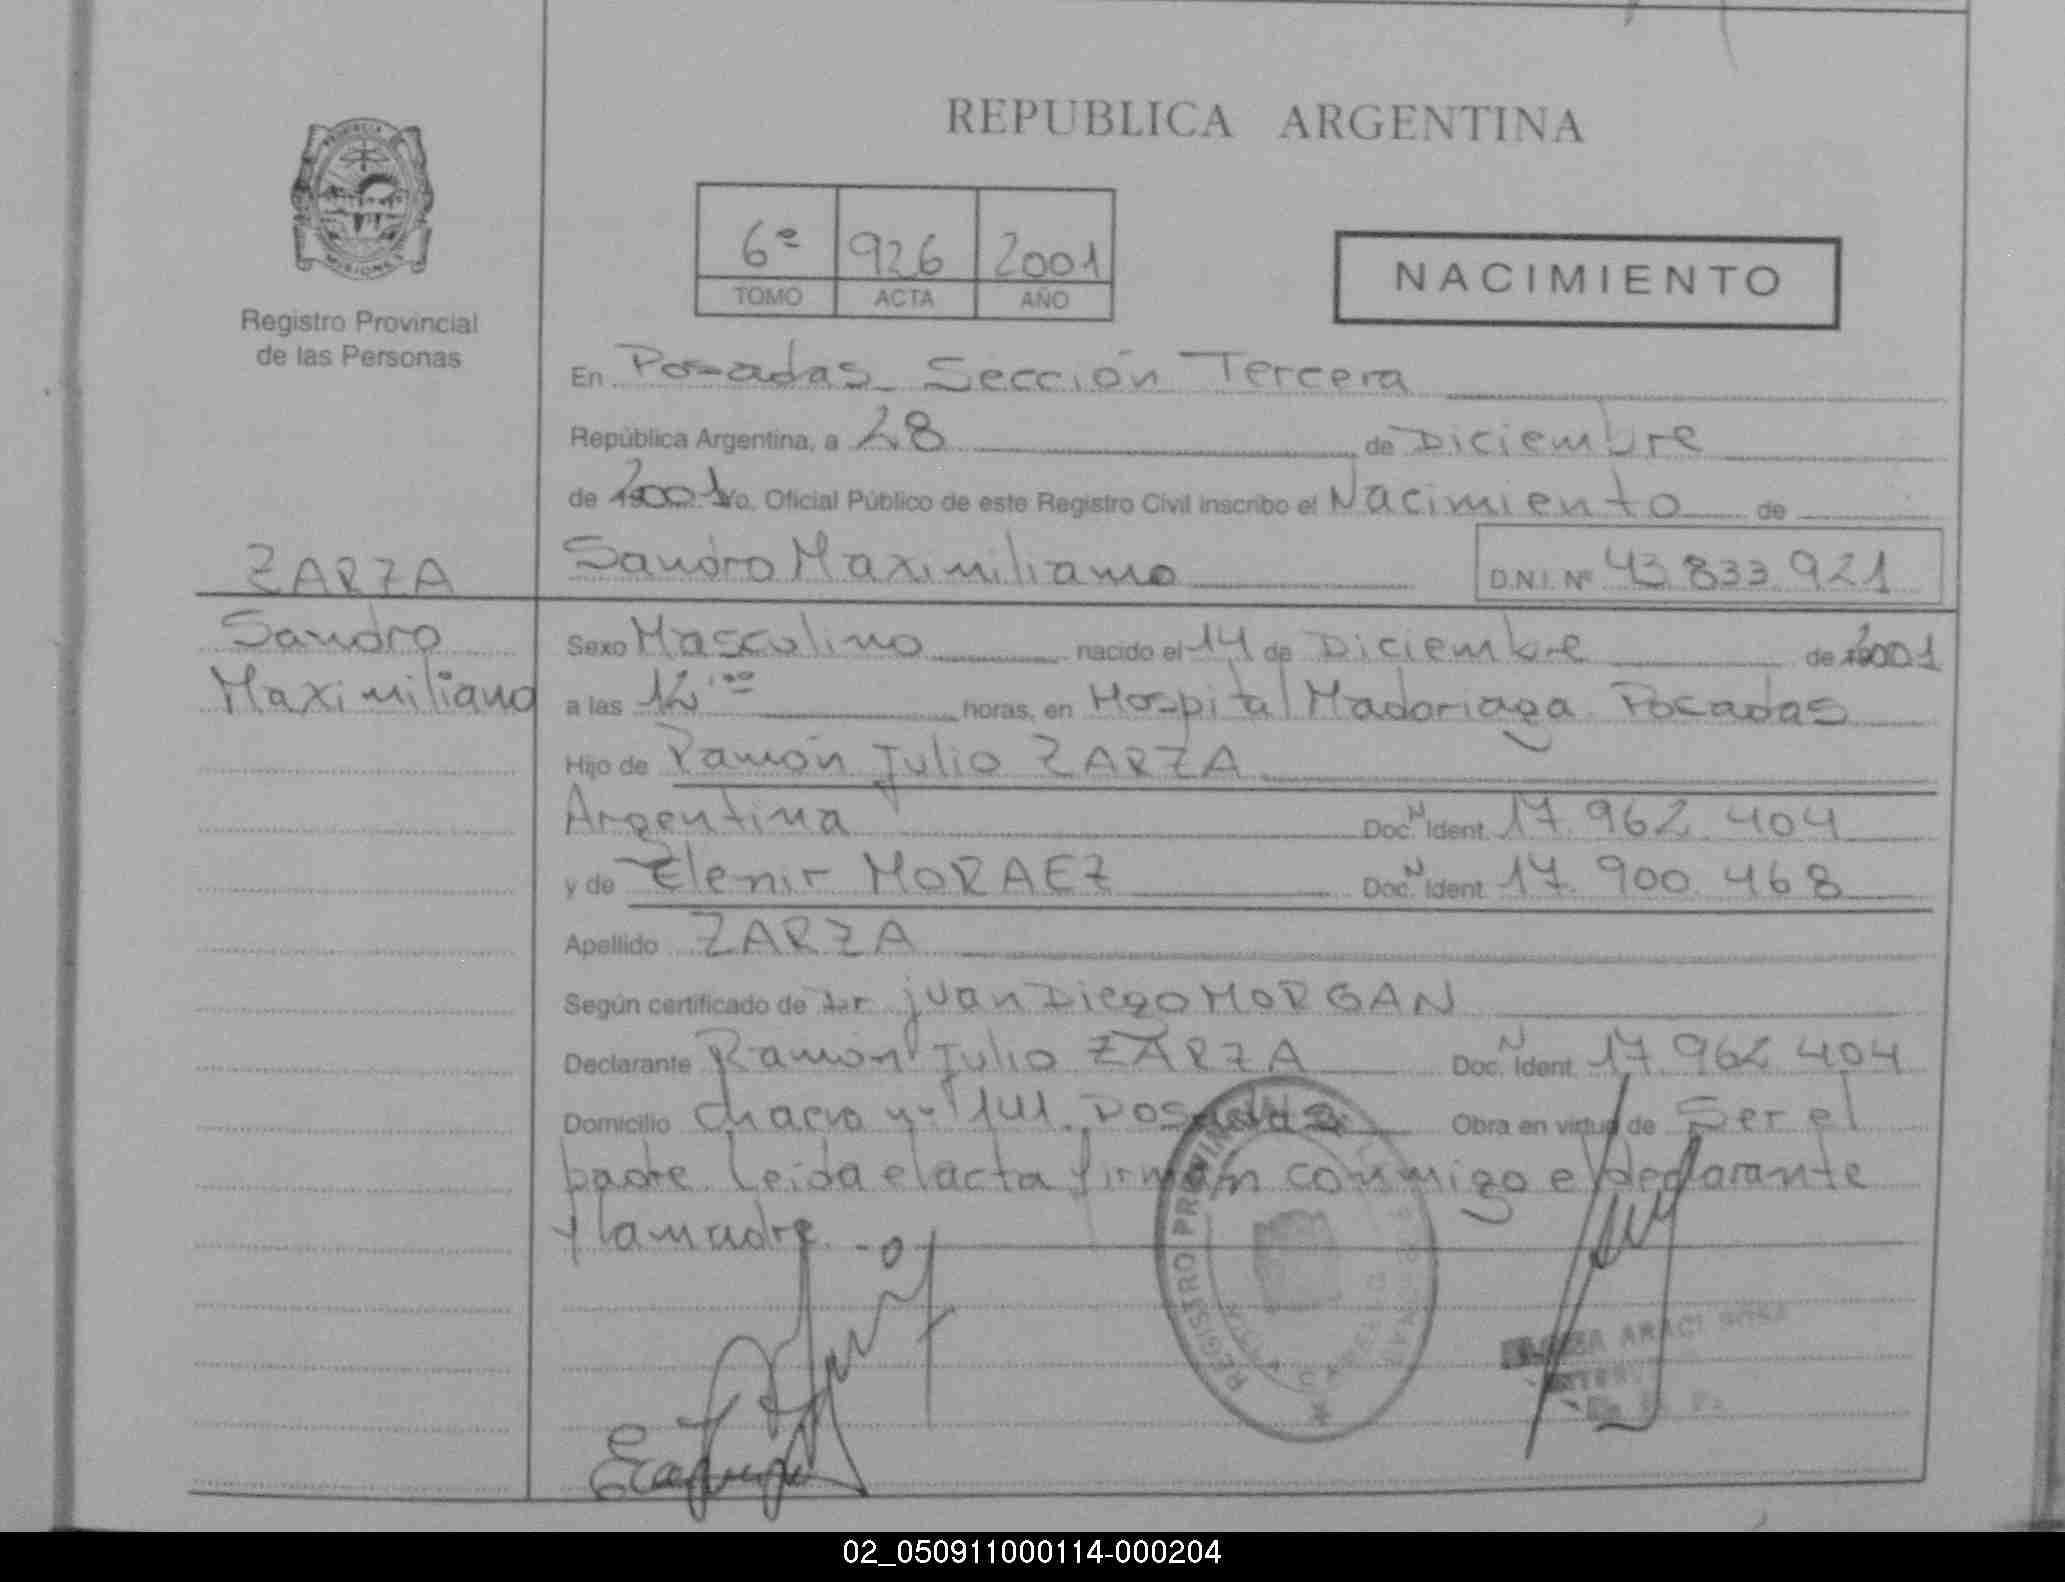 REPUBLICA ARGENTINA
PROVINCIA
MISIONES
Registro Provincial
de las Personas
6º 926 2001
TOMO ACTA AÑO
NACIMIENTO
En Posadas Sección Tercera
República Argentina, a 28 de Diciembre
de 2001 Yo, Oficial Público de este Registro Civil inscribo el Nacimiento de
Sandro Maximiliano D.N.I. Nº 43.833.921
ZARZA
Sandro
Maximiliano
Sexo Masculino nacido el 14 de Diciembre de 2001
a las 12:00 horas, en Hospital Madariaga Posadas
Hijo de Ramón Julio ZARZA
Argentina Doc. N Ident. 17.962.404
y de Elenir MORAEZ Doc. N Ident. 17.900.468
Apellido ZARZA
Según certificado de Dr. Juan Diego MORGAN
Declarante Ramón Julio ZARZA Doc. N Ident. 17.962.404
Domicilio chacra nº 141. Posadas Obra en virtud de Ser el
padre. Leida el acta firman conmigo el declarante
y la madre.
REGISTRO PROVINCIAL
ARACI SOSA
02_050911000114-000204